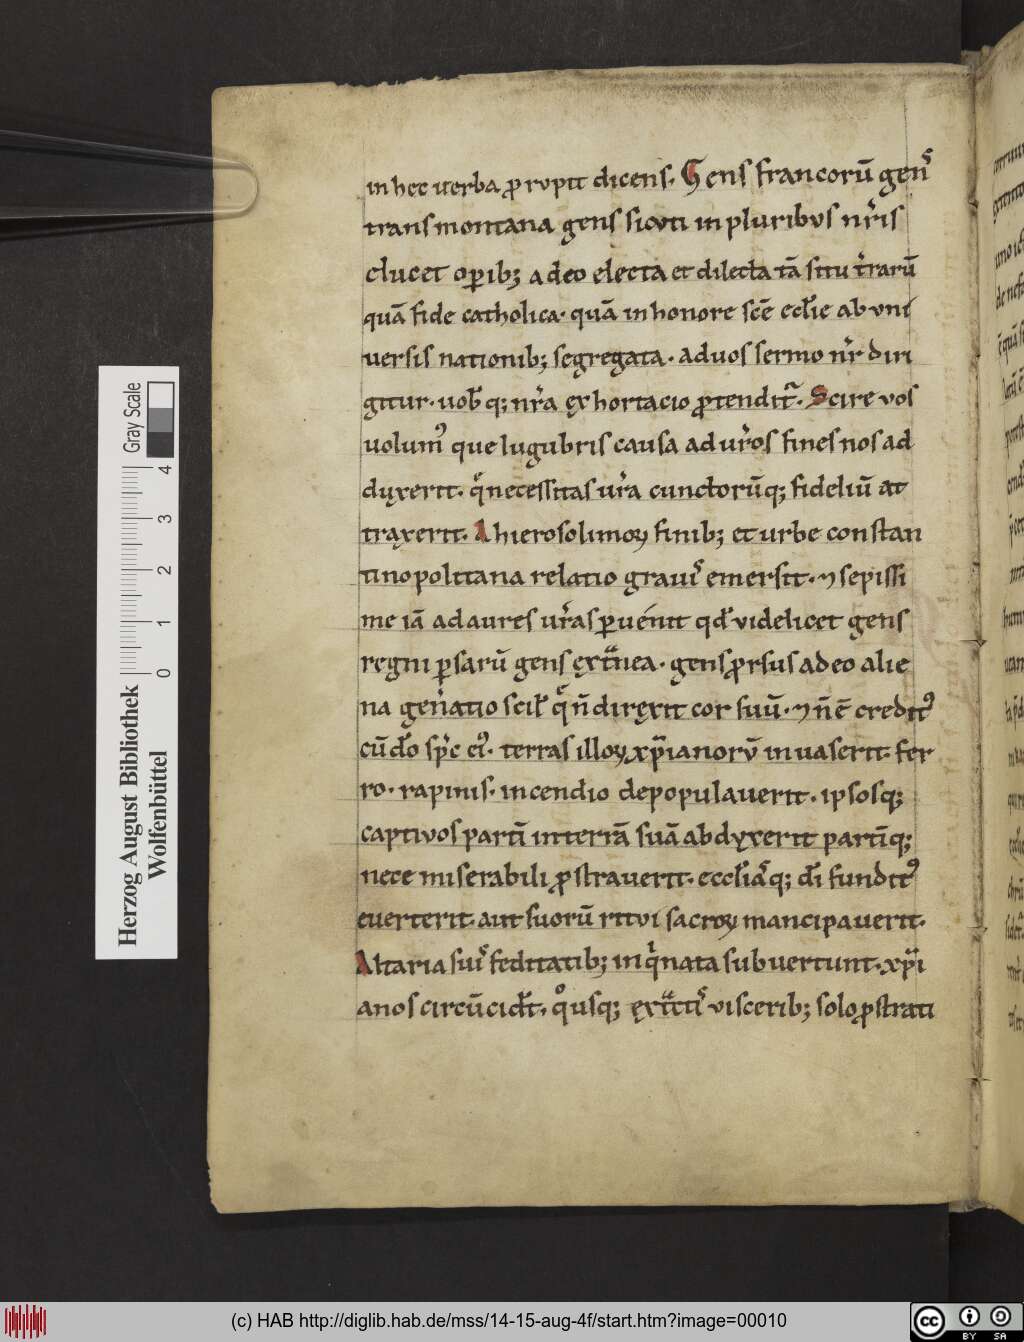 in hec uerba prorupit dicens. Gens francorū gens
transmontana gens sicuti in pluribus nr̄is
elucet op̱ib; adeo electa et dilecta tā situ t̄rarū
quā fide catholica. quā in honore scē eccl̄ie ab uni
uersis nationib; segregata. ad uos sermo nr̄ diri
gitur. uob̄ q; nr̄a exhortacio ꝓtendit᷑. Scire vos
uolum᾽ que lugubris causa ad ur̄os fines nos ad
duxerit. q̄ necessitas ur̄a cunctorūq; fideliū at
traxerit. A hierosolimoꝝ finib; et urbe constan
tinopolitana relatio grauis emersit. ⁊ sepissi
me iā ad aures ur̄as ꝑuenit qd̄ videlicet gens
regni ꝑsarū gens ext̄nea. gens ꝓrsus a deo alie
na gen̄atio scil̄ q̄ n̄ direxit cor suū. ⁊ n̄ ē credit᾽
cū do sp̄c ei᾽. terras illoꝝ xp̄ianorū inuaserit fer
ro. rapinis. incendio depopulauerit. ipsosq;
captivos partī in terrā suā abdyxerit partīq;
nece miserabili ꝓstrauerit. eccl̄iasq; dī fundit᾽
euerterit. aut suorū ritvi sacroꝝ mancipauerit.
Altaria suis feditatib; inq̄nata subuertunt. xp̄i
anos circūcidt̄. q̊usq; ext̄ctis viscerib; solo ꝓstrati
Herzog August Bibliothek
Wolfenbüttel
Gray Scale
0 1 2 3 4
(c) HAB http://diglib.hab.de/mss/14-15-aug-4f/start.htm?image=00010
cc BY SA